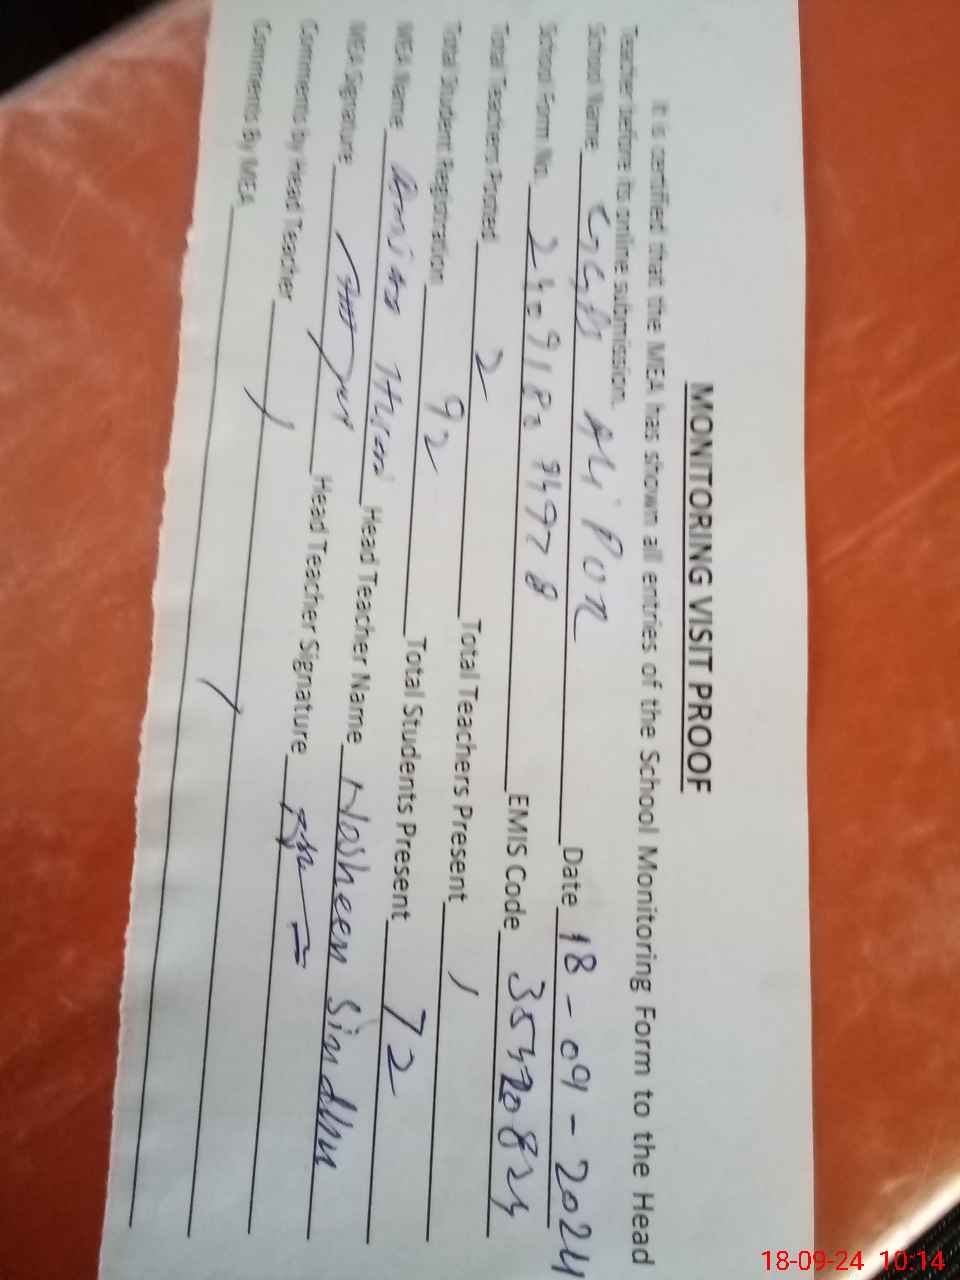 MONITORING VISIT PROOF
It is certified that the MEA has shown all entries of the School Monitoring Form to the Head
Teacher before its online submission.
School Name Date 18-09-2024
School Form No. EMIS Code
Total Teachers Posted 2 Total Teachers Present 1
Total Student Registration 92 Total Students Present 72
MEA Name Head Teacher Name Nosheen Sindhu
MEA Signature Head Teacher Signature
Comments by Head Teacher
Comments By MEA
18-09-24 10:14